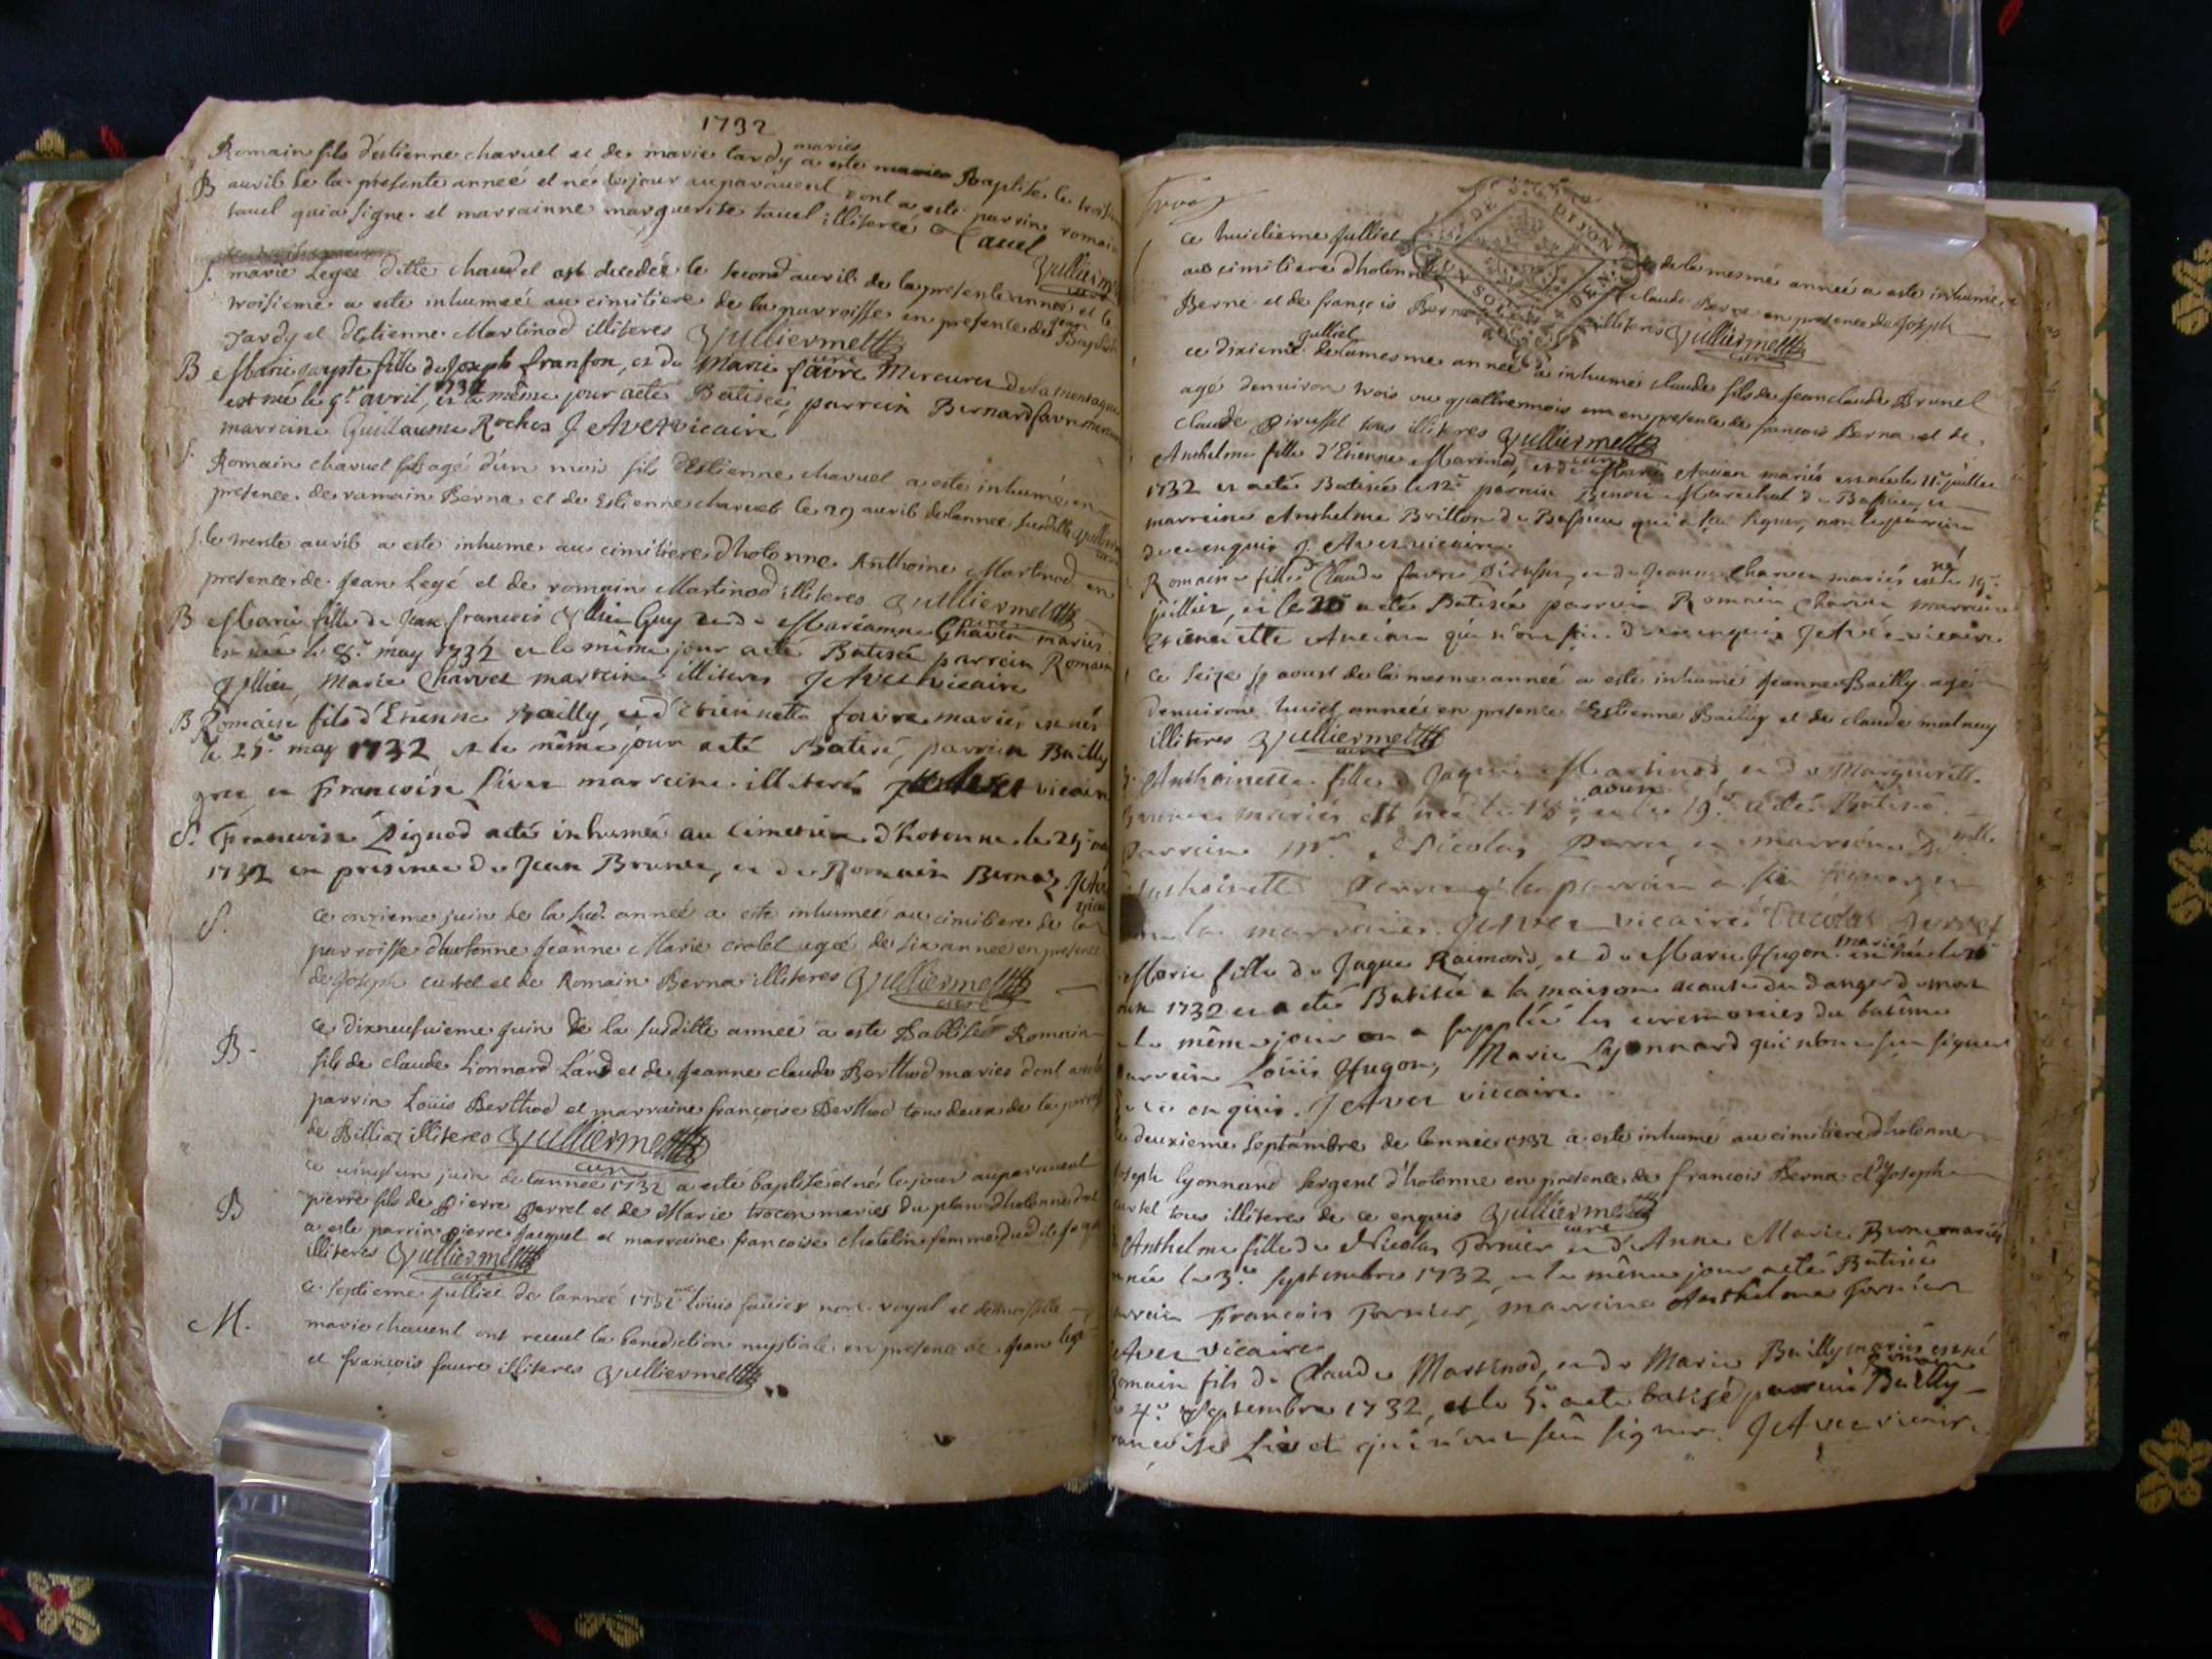 1732
Romain fils d'estienne charuel et de marie tardy maries a este Baptise le troisi
B auril de la presente anneé et né le jour auparauent dont a este parrin romain
tauel qui a signe et marrainne marguerite tauel illitereé Tauel
Vulliermet
S. marie Legée ditte chaudel est decedée le second auril de la presente anneé et le
troisieme a este inhumeé au cimitiere de la parroisse en presence de Jean Baptiste
Tardy et d'Etienne Martinod illiteres Vulliermet curé
B Marie fille de Joseph franson, et de Marie favre Mercurer de la montagne
est neé le 9e avril 1732, et le même jour a eté Batiseé, parrein Bernard favre
marreine Guillauma Roches J Avet vicaire
S. Romain charuel agé d'un mois fils d'Estienne charuel a este inhumé en
presence de romain Berna et de Estienne charuel le 29 auril de lanneé susditte Vulliermet
S. le trente auril a este inhume au cimitiere d'hotonne Anthoine Martinod en
presence de Jean Legé et de romain Martinod illiteres Vulliermet curé
B Marie fille de Jean francois Guy et de Marianne Charvet mariés
est neé le 8e may 1732 et le même jour a eté Batiseé parrein Romain
Marie Charvet marreine illiteres J Avet vicaire
B Romain fils d'Etienne Bailly, et d'Etiennette favre mariés est né
le 25e may 1732, et le même jour a eté Batisé, parrein Bailly
et Francoise Livet marreine illiterés J Avet vicaire
S. Francoise Pignod a eté inhumeé au Cimetiere d'hotonne le 29e may
1732 en presence de Jean Brunet, et de Romain Berna J Avet
vicaire
S. ce onzieme juin de la susd. anneé a este inhumeé au cimitiere de la
parroisse d'hotonne Jeanne Marie crolet ageé de six anneé en presence
de Joseph curtet et de Romain Berna illiteres Vulliermet
curé
B. ce dixneufuieme juin de la susditte anneé a este Babtisé Romain
fils de claude Lionnard Land et de Jeanne claude Berthod maries dont a esté
parrin Louis Berthod et marraine françoise Berthod tous deux de la parroisse
de Billiaz illiteres Vulliermet
curé
ce uingt un juin de lanneé 1732 a esté baptisé et né le jour auparauent
B pierre fils de Pierre parret et de Marie trocon maries du plan d'hotonne dont
a este parrin pierre Jacquet et marraine francoise chatelin femme dud.
illiteres Vulliermet
curé
ce septieme julliet de lanneé 1732 Louis sauier nore. royal et demoiselle
M. marie chauent ont receut la benediction nuptiale en presence de Jean legé
et françois faure illiteres Vulliermet
trois
DE DIJON
ce huictieme Julliet de la mesme année a este inhumé
au cimitiere d'hotonne claude Berna en presence de Joseph
Berne et de françois Berna illiteres Vulliermet
curé
ce dixieme julliet de la mesme anneé a inhumé claude fils de Jean claude Brunel
agé denuiron trois ou quattre mois en presence de francois Berna et de
claude Pirussel tous illiteres Vulliermet
curé
Anthelme fille d'Etienne Martinod, et de Marie Ancian mariés est neé le 11e juillet
1732 et a eté Batiseé le 12e parrein Benoit Marechal de Bassieu, et
marreine Anthelme Brillon de Bassieu qui a sçu signer, non le parrein
de ce enquis J. Avet vicaire
Romaine fille de Claude favre Pirussel, et de Jeanne Charvet mariés est né le 19e
juillet, et le 20e a eté Batiseé parrein Romain Charvet marreine
Etiennette Ancian qui n'ont sçu de ce enquis J Avet vicaire
ce seize aoust de la mesme anneé a este inhumé Jeanne Bailly agé
denuiron huict anneés en presence Estienne Bailly et de claude malnuy
illiteres Vulliermet
curé
Anthoinette fille de Jaques Martinod, et de Marguerite
mariés est neé le 18e aoust, et le 19e a eté Batiseé
parrein Mr. Nicolas Parret et marreine Dmlle
Anthoinette Parret le parrein a sçu signer
non la marreine. J Avet vicaire Nicolas Parret
Marie fille de Jaque Raimond, et de Marie Hugon mariés est neé le 26
aout 1732 et a eté Batiseé a la maison a cause du danger de mort
et le même jour on a suppléé les ceremonies du batême
parrein Loüis Hugon, Marie Lyonnard qui n'ont sçu signer
de ce enquis. J Avet viccaire.
ce deuxieme septambre de lanneé 1732 a este inhumé au cimitiere d'hotonne
Joseph lyonnard sergent d'hotonne en presence de françois Berna et Joseph
curtet tous illiteres de ce enquis Vulliermet
curé
Anthelme fille de Nicolas Fornier et d'Anne Marie Berne mariés
neé le 3e septembre 1732, et le même jour a eté Batiseé
parrein François Fornier, marreine Anthelme Fornier
J Avet vicaire
Romain fils de Claude Martinod, et de Marie Bailly mariés est né
le 4e septembre 1732, et le 5e a eté batisé parrein Romain Bailly
françoise Livet qui n'ont sçu signer. J Avet vicaire